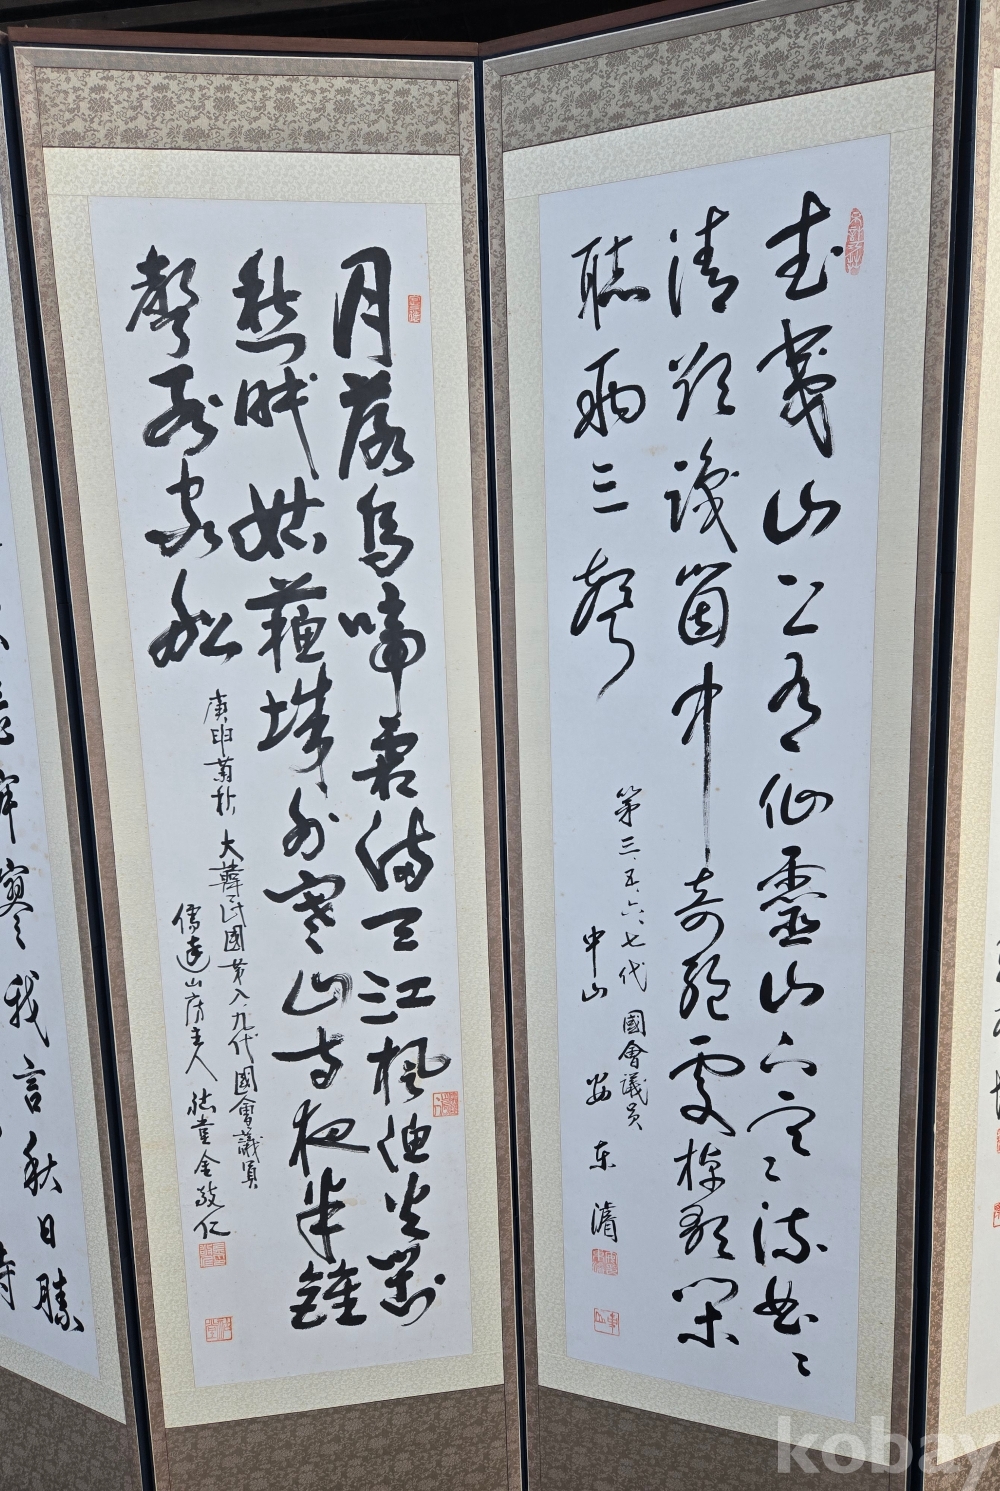 武夷山上有仙靈山下寒流曲〻
清欲識箇中奇絶處棹歌閑
聽兩三聲
第三.五.六.七代 國會議員
中山 安東濬
月落烏啼霜滿天江楓漁火對
愁眠姑蘇城外寒山寺夜半鐘
聲到客船
庚申菊秋 大韓民國第八.九代國會議員
儒達山房主人 堂金敬仁
寥我言秋日勝
kobay